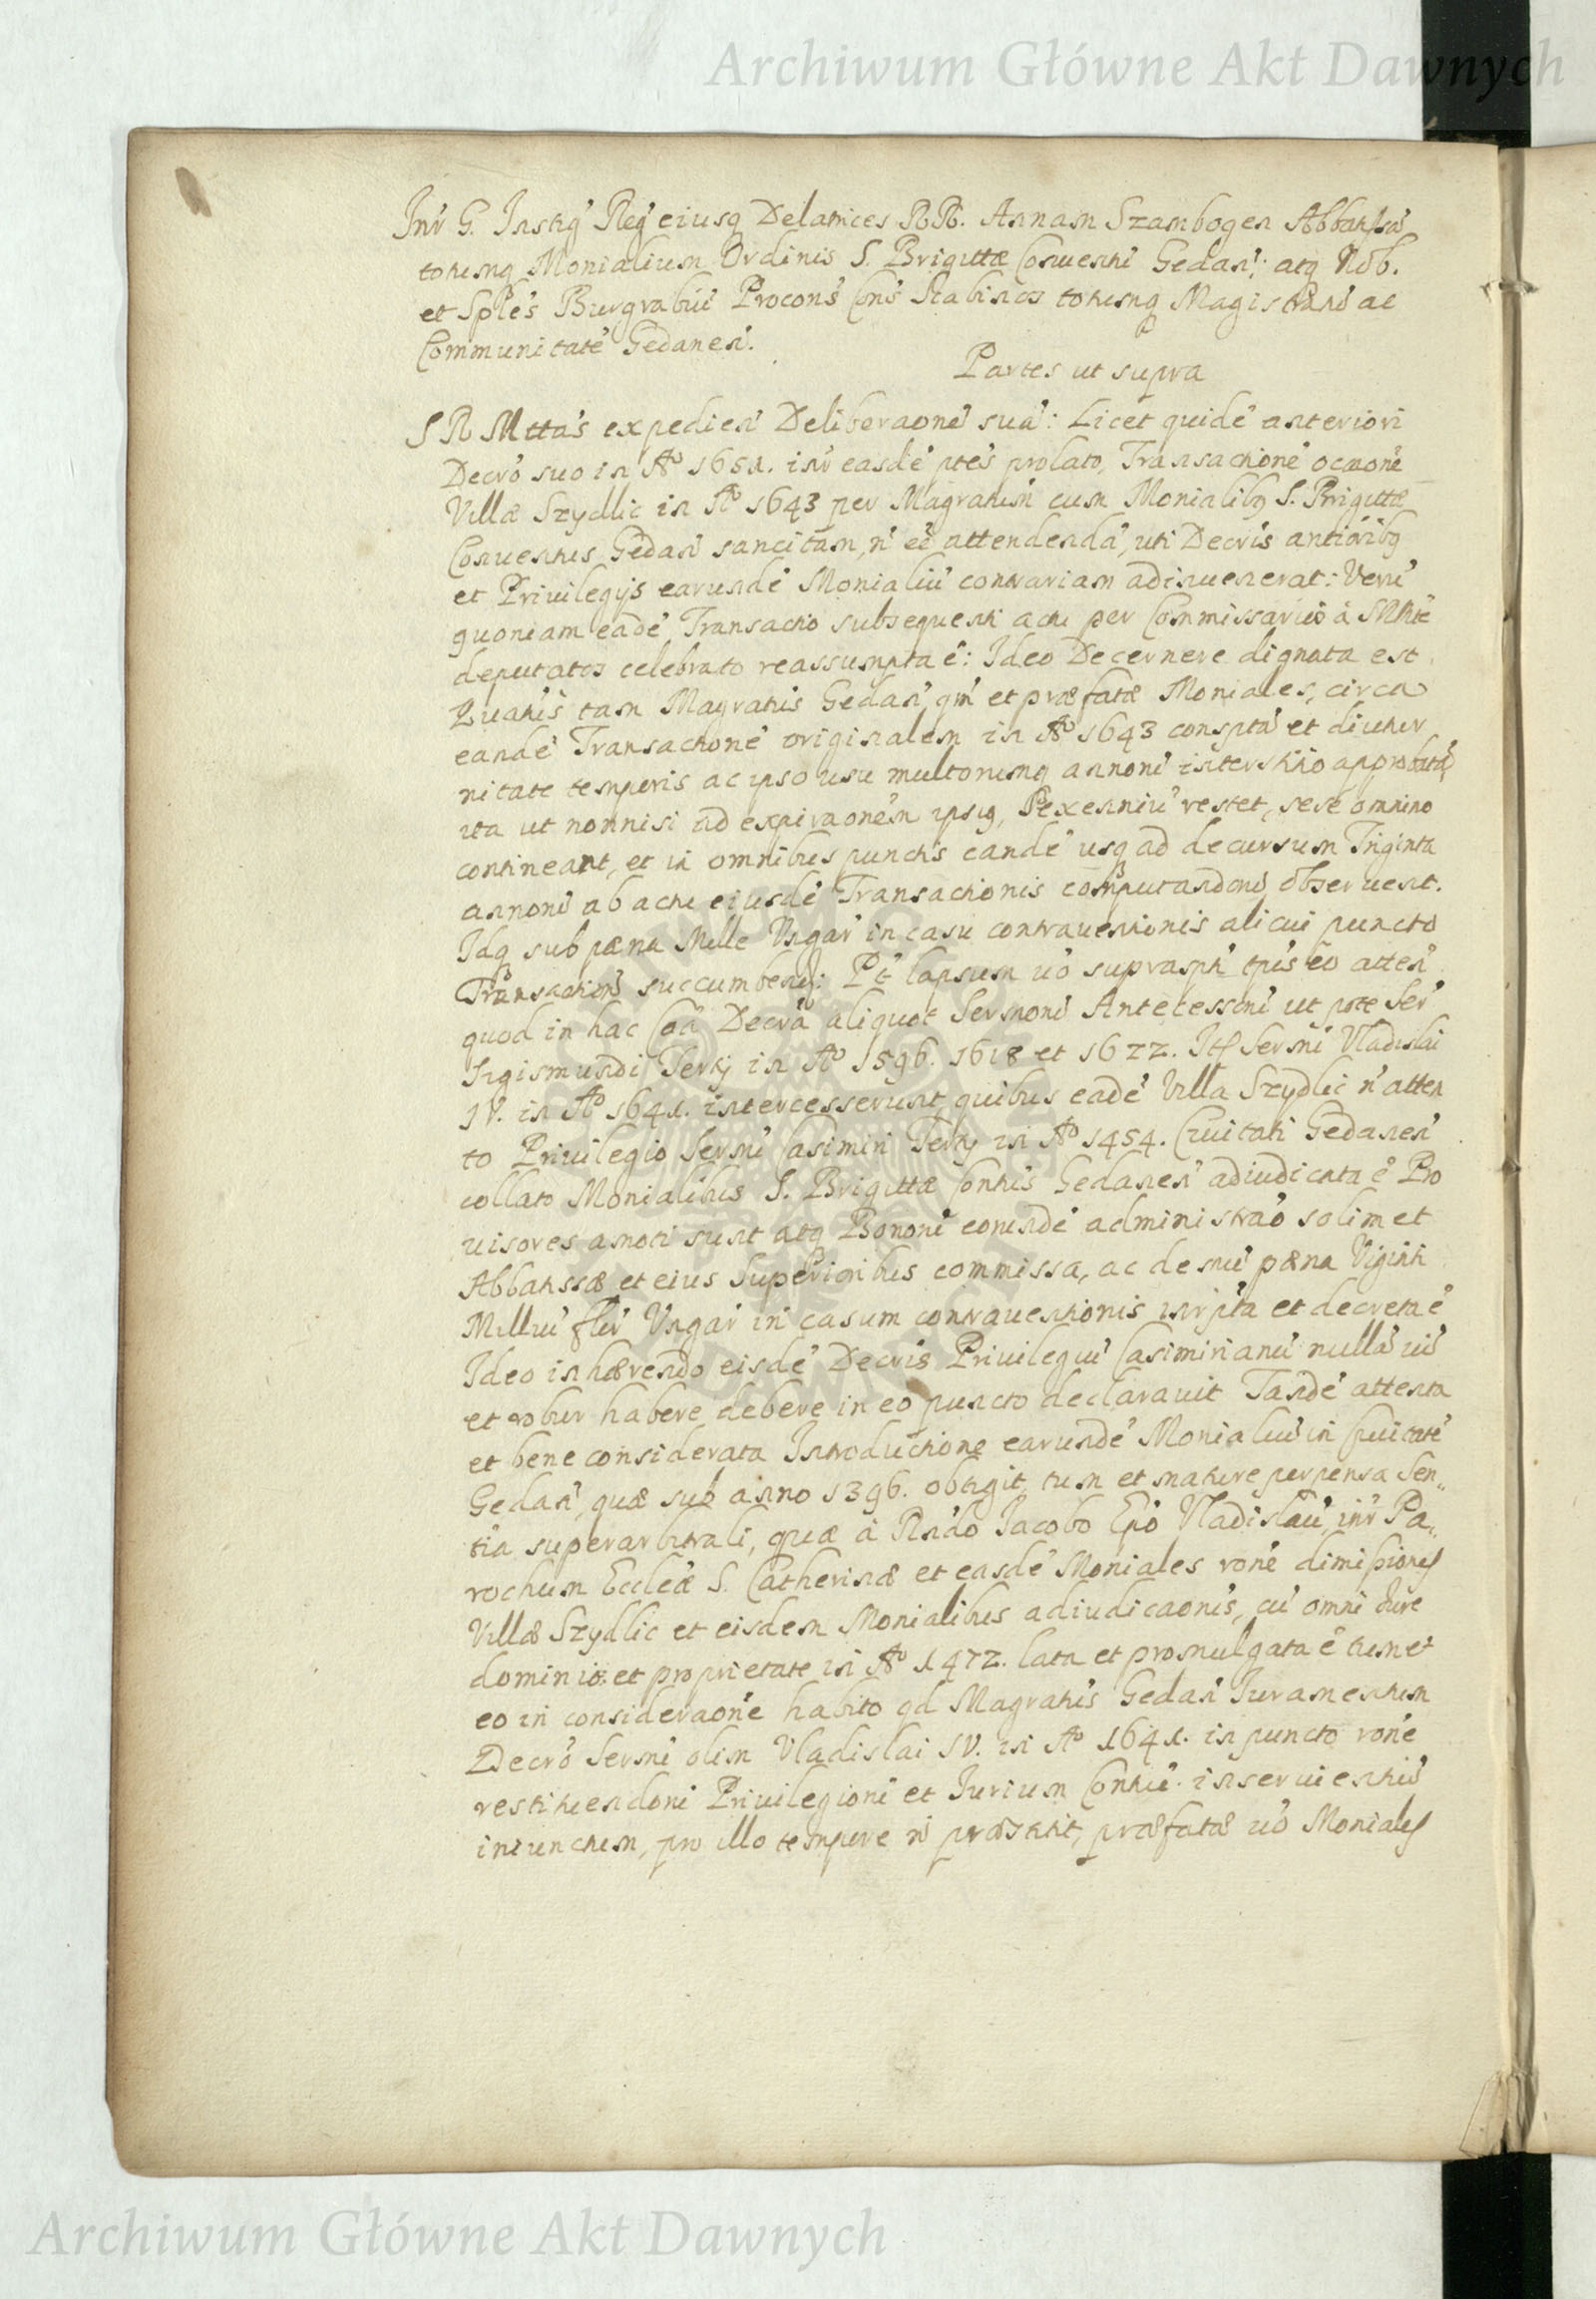 Archiwum Główne Akt Dawnych
Inr̃ G. Instig̃ Reg̃ eiusq̃ Delatrices RR. Annam Szambogen Abbatissã
totumq̃ Monialium Ordinis S. Brigittæ Conuentũ Gedañ: atq̃ Nob.
et Splẽs Burgrabiũ Procons̃ Cons̃ Scabinos totumq̃ Magistratũ ac
Communitatẽ Gedaneñ.
Partes ut supra
S R Mttas expedieñ Deliberaonẽ suã: Licet quidẽ anteriori
Decrõ suo in Aº 1651. inr̃ easdẽ ptẽs prolato, Transactionẽ ocaonẽ
Villæ Szydlic in Aº 1643 per Magratum̃ cum Monialib9 S. Brigittæ
Conuentus Gedañ sancitam, ñ eẽ attendendã, uti Decrĩs antiorib9
et Priuilegijs earundẽ Monialiũ contrariam adinuenerat: Verũ
quoniam eadẽ Transactio subsequenti actu per Commissarios à SRMte
deputatos celebrato reassumpta ẽ: Ideo Decernere dignata est
Quatũs tam Magratus Gedañ, qm̃ et præfatæ Moniales, circa
eandẽ Transactionẽ originalem in Aº 1643 conscptã et diutur
nitate temporis ac ipso usu multorumq̃ annorũ interstitio approbatã,
ita ut nonnisi ad expiraonẽm ipsi9, Sexenniũ restet, sese omnino
contineant, et in omnibus punctis eandẽ usq̃ ad decursum Triginta
annorũ ab actu eiusdẽ Transactionis computandorũ obseruent.
Idq̃ sub pæna Mille Vngaŕ in casu contrauentionis alicui puncto
Transactionis succumbendj: Pt̃ lapsum uõ suprasptĩ tpĩs eõ atteñ
quod in hac Cõa Decrã aliquot Sermorũ Antecessorũ ut pote Ser̃
Sigismundi Tertij in Aº 1596. 1618 et 1622. Itẽ Sermĩ Vladislai
IV. in Aº 1641. intercesserunt, quibus eadẽ Villa Szydlic ñ atten
to Priuilegio Sermĩ Casimiri Tertij in Aº 1454. Ciuitati Gedaneñ
collato Monialibus S. Brigittæ Contũs Gedaneñ adiudicata ẽ Pro
uisores amoti sunt atq̃ Bonorũ eorundẽ administraõ solimet
Abbatissæ et eius Superioribus commissa, ac demũ pæna Viginti
Milliũ flor̃ Vngaŕ in casum contrauentionis insrpta et decreta ẽ
Ideo inhærendo eisdẽ Decrĩs Priuilegiũ Casimirianũ nullã uĩ
et robur habere debere in eo puncto declarauit Tandẽ attenta
et bene considerata Introductione earundẽ Monialiũ in Ciuitatẽ
Gedañ, quæ sub anno 1396. obtigit, tum et mature perpensa Sen„
tia superarbitrali, quæ à Rndo Jacobo Epõ Vladislaũ, inr̃ Pa„
rochum Eccleæ S. Catherinæ et easdẽ Moniales ronẽ dimissionis
Villæ Szydlic et eisdem Monialibus adiudicaonis, cũ omni Iure
dominio et proprietate in Aº 1472. lata et promulgata ẽ tum et
eo in consideraonẽ habito qd Magratus Gedañ Iuramentum
Decrõ Sermĩ olim Vladislai IV. in Aº 1641. in puncto ronẽ
restituendorũ Priuilegiorũ et Iurium Contũi inseruientiũ
iniunctum, pro illo tempore ñ præstitit, præfatæ uõ Moniales
Archiwum Główne Akt Dawnych